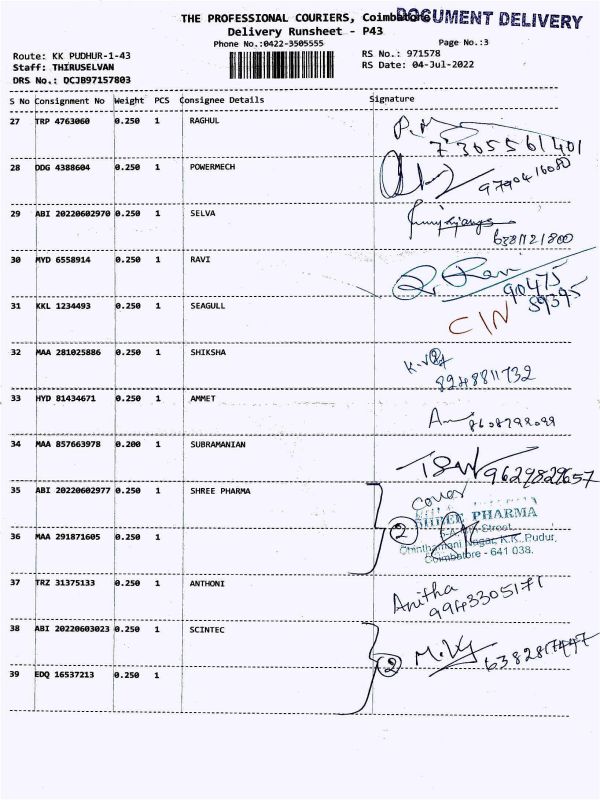 THE PROFESSIONAL COURIERS, Coimbatore
DOCUMENT DELIVERY
Delivery Runsheet - P43
Phone No.:0422-3505555
Page No.:3
Route: KK PUDHUR-1-43
RS No.: 971578
Staff: THIRUSELVAN
RS Date: 04-Jul-2022
DRS No.: DCJB97157803
S No Consignment No Weight PCS Consignee Details Signature
27 TRP 4763060 0.250 1 RAGHUL
7305561401
28 DDG 4388604 0.250 1 POWERMECH
9790416080
29 ABI 20220602970 0.250 1 SELVA
6381121800
30 MYD 6558914 0.250 1 RAVI
R. Ravi
90475
59395
31 KKL 1234493 0.250 1 SEAGULL
C/N
32 MAA 281025886 0.250 1 SHIKSHA
8248811732
33 HYD 81434671 0.250 1 AMMET
34 MAA 857663978 0.200 1 SUBRAMANIAN
9629829657
35 ABI 20220602977 0.250 1 SHREE PHARMA
cover
SHREE PHARMA
36 MAA 291871605 0.250 1
2
Chinthamani Nagar, K.K. Pudur,
Coimbatore - 641 038.
37 TRZ 31375133 0.250 1 ANTHONI
Anitha
9943305171
38 ABI 20220603023 0.250 1 SCINTEC
2
39 EDQ 16537213 0.250 1